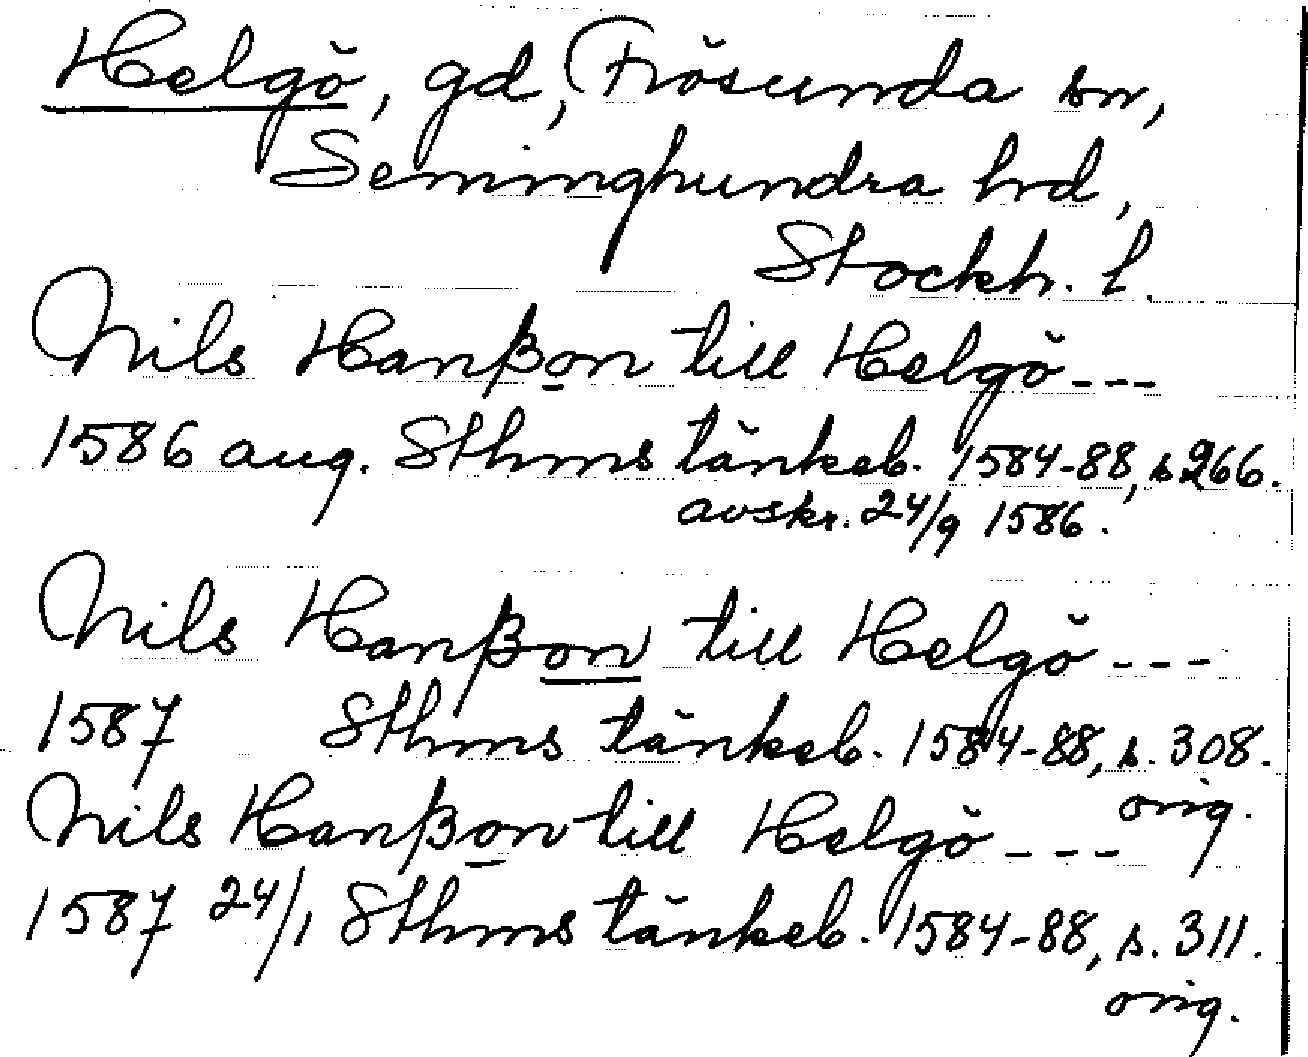 Helgö, gd, Frösunda sn,
Seminghundra hrd,
Stockh. l.
Nils Hanßon till Helgö ---
1586 aug. Sthms tänkeb. 1584-88, s 266.
avskr. 24/9 1586.
Nils Hanßon till Helgö ---
1587 Sthms tänkeb. 1584-88, s. 308.
orig.
Nils Hanßon till Helgö ---
1587 24/1 Sthms tänkeb. 1584-88, s. 311.
orig.